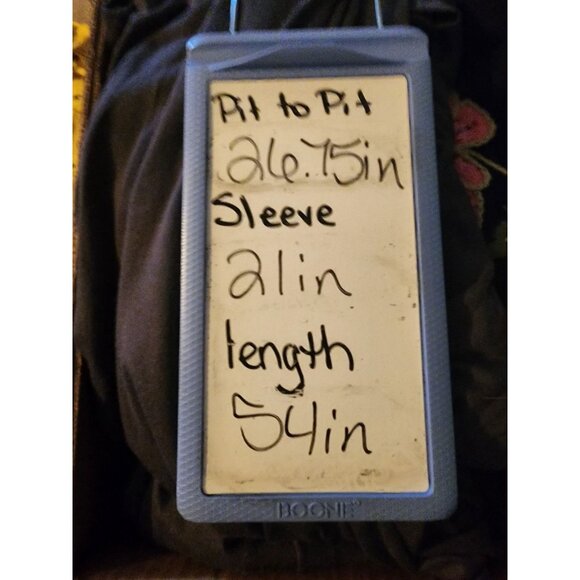 Pit to Pit
26.75in
Sleeve
21in
length
54in
BOONE